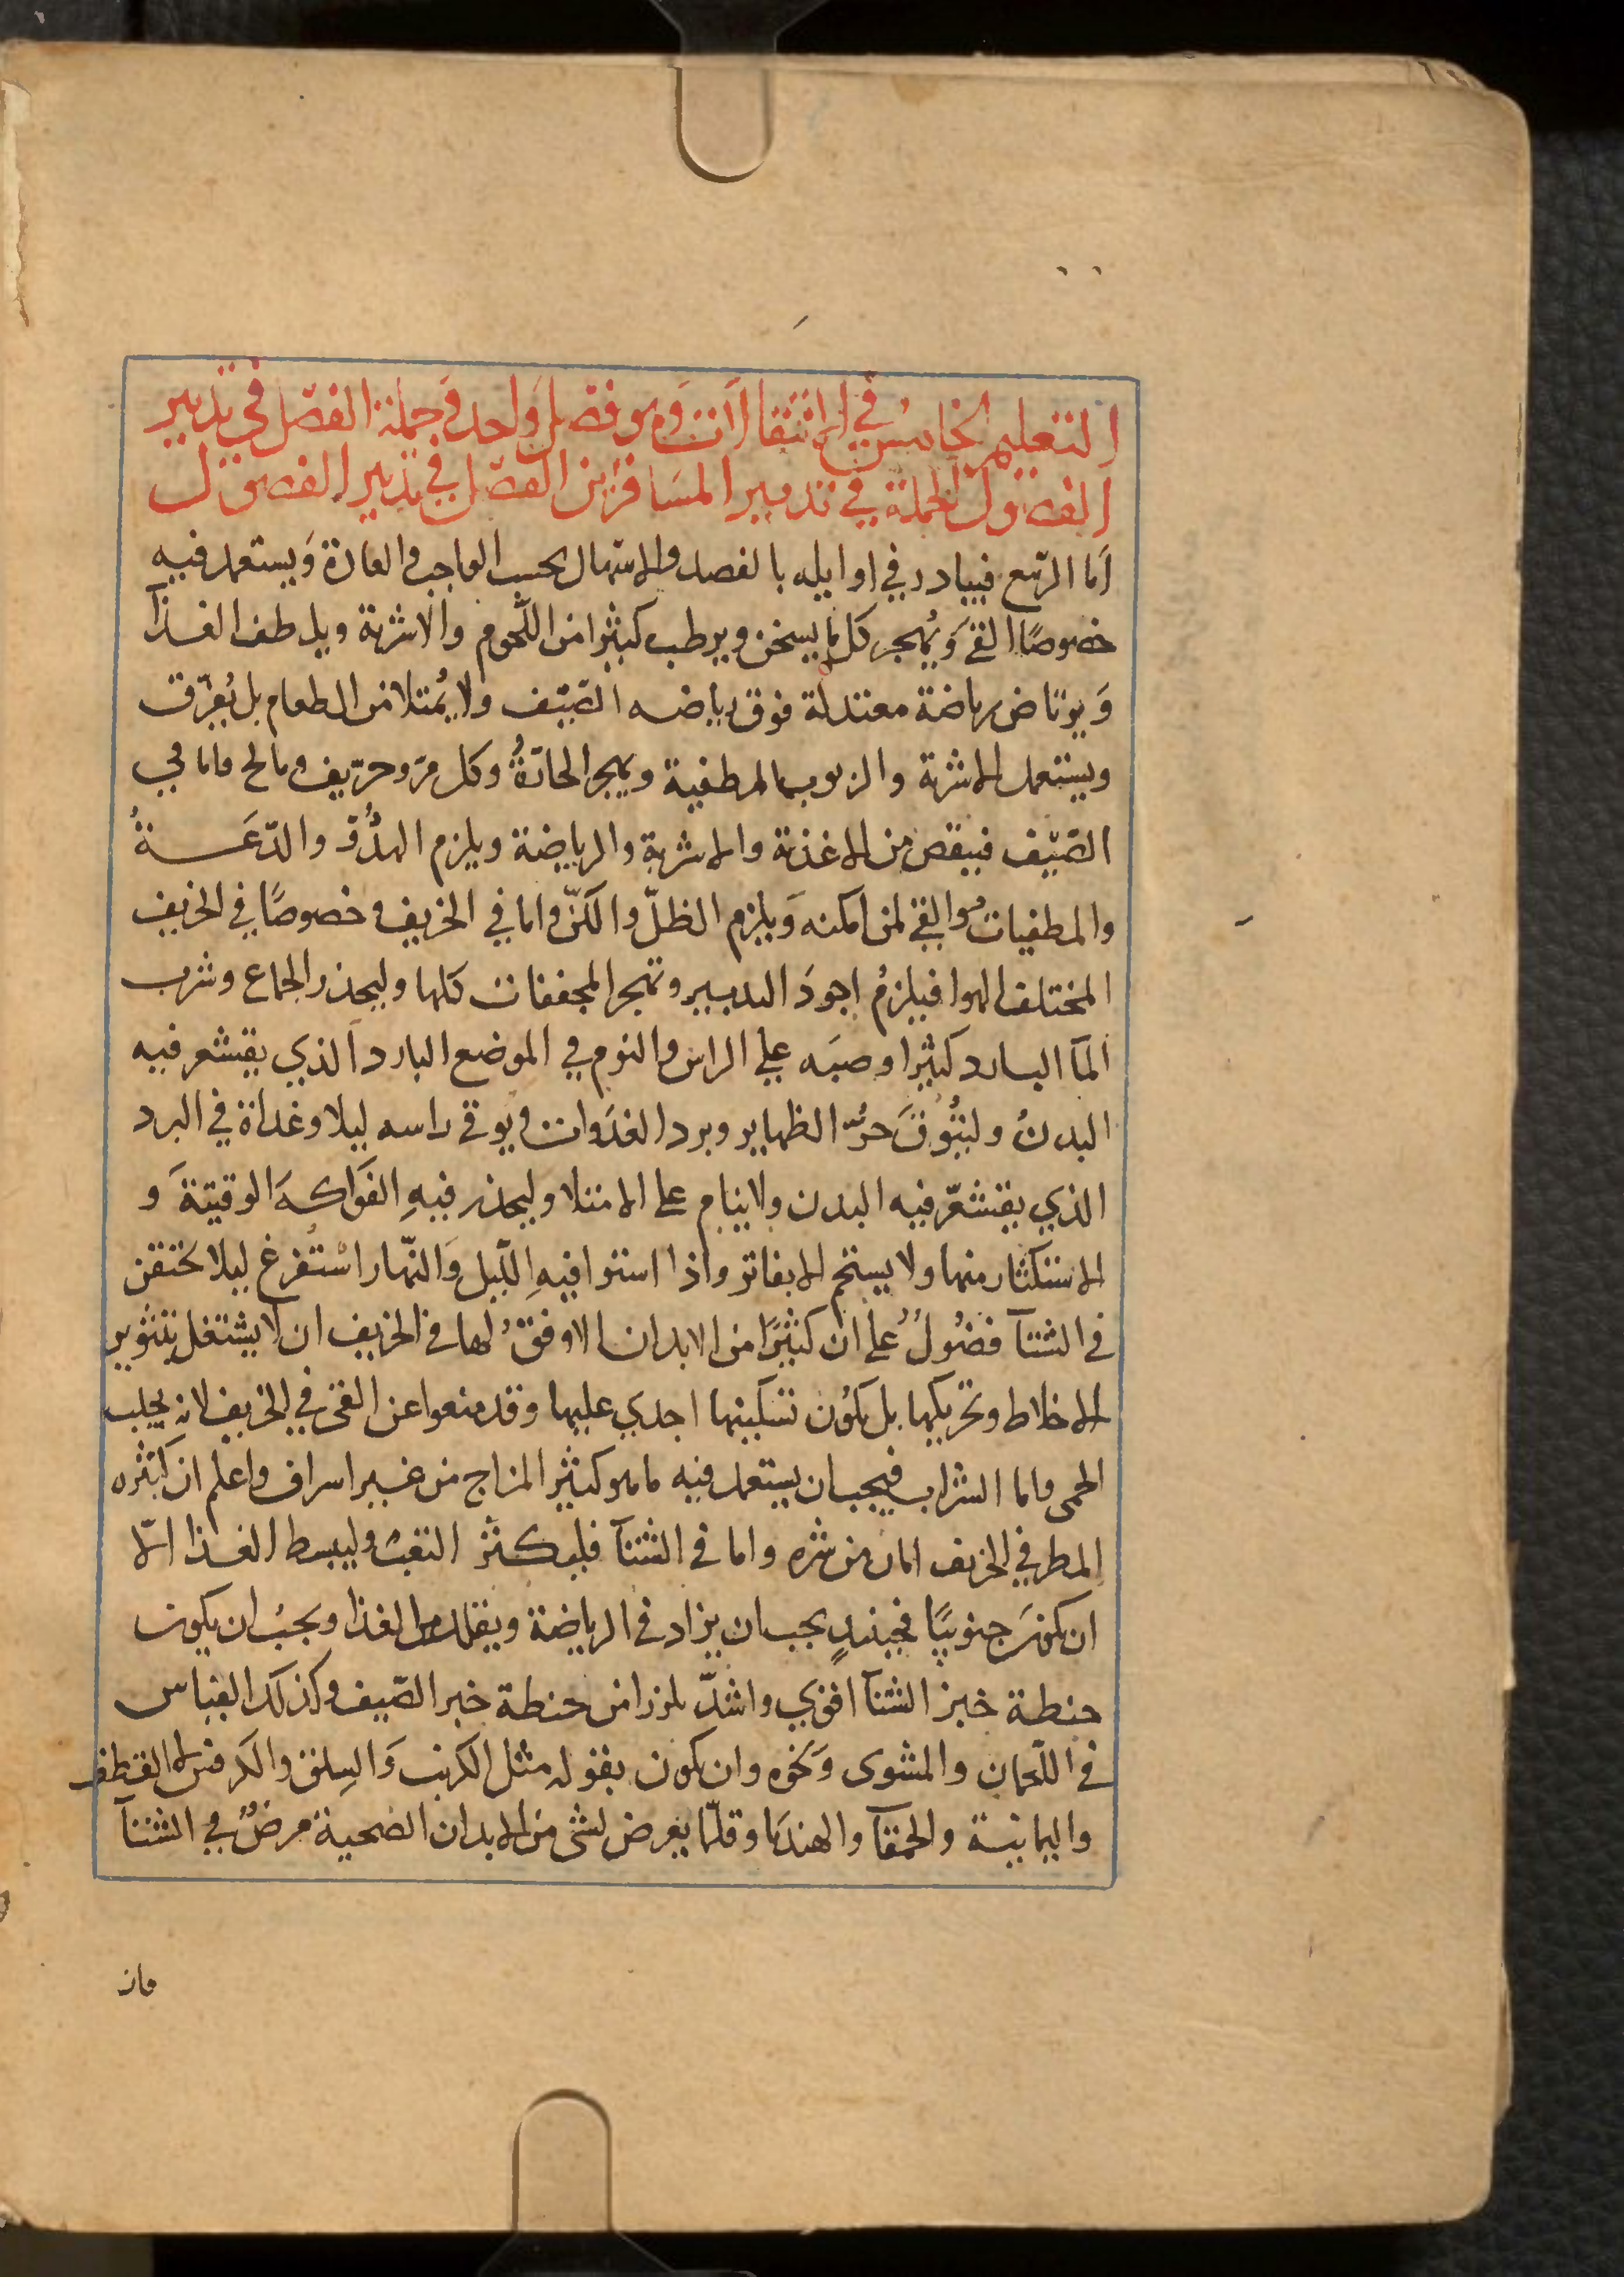 التعليم الخامس في الانتقالات وهو فصل واحد وجملة الفصل في تدبير
الفصول الجملة في تدبير المسافرين الفصل في تدبير الفصول
اما الربيع فيبادر في اوايله بالفصد والاسهال بحسب الواجب والعادة وَيستعمل فيه
خصوصًا القئ وَيُهجر كل ما يسخن ويرطب كثيرا من اللّحوم والاشربة ويلطف الغذآ
وَيرتاض رياضة معتدلة فوق رياضه الصّيف ولا يُمتلا من الطعام بل يُفرّق
ويستعمل الاشربة والربوب المطفية ويهجر الحارّةُ وكل مرّ وحرّيف ومالح واما في
الصّيف فينقص من الاغذية والاشربة والرياضة ويلزم الهدُوّ والدّعَـــةُ
والمطفيات والقئ لمن امكنه وَيلزم الظلّ والكنّ واما في الخريف وخصوصًا في الخريف
المختلف الهوا فيلزمُ اجودَ التدبير وتهجر المجففات كلها وليحذر الجماع وشرب
المآ البارد كثيرا وصبَه علي الراس والنوم في الموضع البارد الذي يقشعر فيه
البدنُ وليتُوقَ حرُّ الظهاير وبرد الغدَوات ويوقي راسه ليلا وغداة في البرد
الذي يقشعّر فيه البدن ولا ينام على الامتلا وليحذر فيهِ الفَواكهَ الوقتيّةَ و
الاستكثار منها ولا يستحم الا بفاتر واذا استوا فيهِ اللّيل وَالنّهار اسْتُفرغ ليلا يحتقن
في الشتآ فضُولٌ علي ان كثيرًا من الابدان الاوفقُ لها في الخريف ان لا يشتغل بتثوير
الاخلاط وتحريكها بل يكوُن تسكينها اجدي عليها وقد منعوا عن القئ في الخريف لانه يجلب
الحمى واما الشراب فيجب ان يستعمل فيه ما هو كثير المزاج من غير اسراف واعلم ان كثره
المطر في الخريف امان من شره واما في الشتآ فليكثر التعب وليبسط الغذا الّا
ان يكونَ جنوبيًا فحينيدٍ يجب ان يزاد في الرياضة ويقلل من الغذا ويجبُ ان يكون
حنطة خبز الشتآ اقوي واشدّ تلززا من حنطة خبز الصّيف وكذلك القياس
في اللّحمان والمشوى وَنحوه وان يكون بقوله مثل الكرنب وَالسِلق والكرفس لا القطف
واليمانية والحمقآ والهندبا وقلّما يعرض لشئ من الابدان الصحيحة مرضٌ في الشتآ
وان